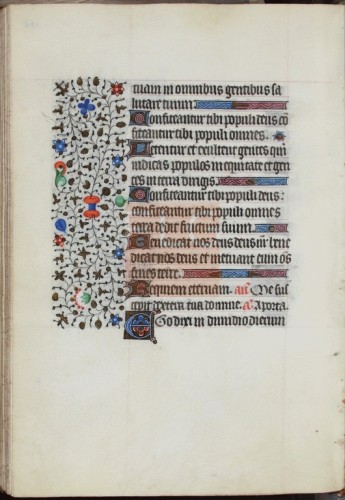 tuam in omnibus gentibus sa
lutare tuum.
Confiteantur tibi populi deus co
fiteantur tibi populi omnes.
Letentur et exultent gentes qm
iudicas populos in equitate et gen
tes in terra dirigis.
Confiteantur tibi populi deus:
confiteantur tibi populi omnes
terra dedit fructum suum.
Benedicat nos deus deus nr bene
dicat nos deus et metuant eum oes
fines terre.
Requiem eternam. an. Me sus
cepit dextera tua domine. A porta
Ego dixi in dimidio dierum